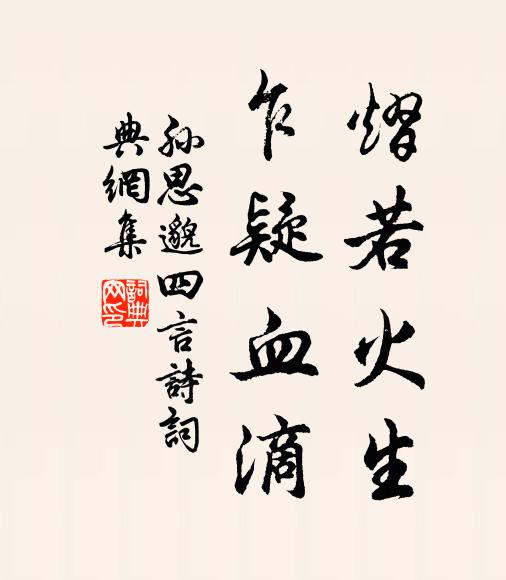 熠若火生
乍疑血滴
孙思邈四言詩詞
典網集
詞典網印